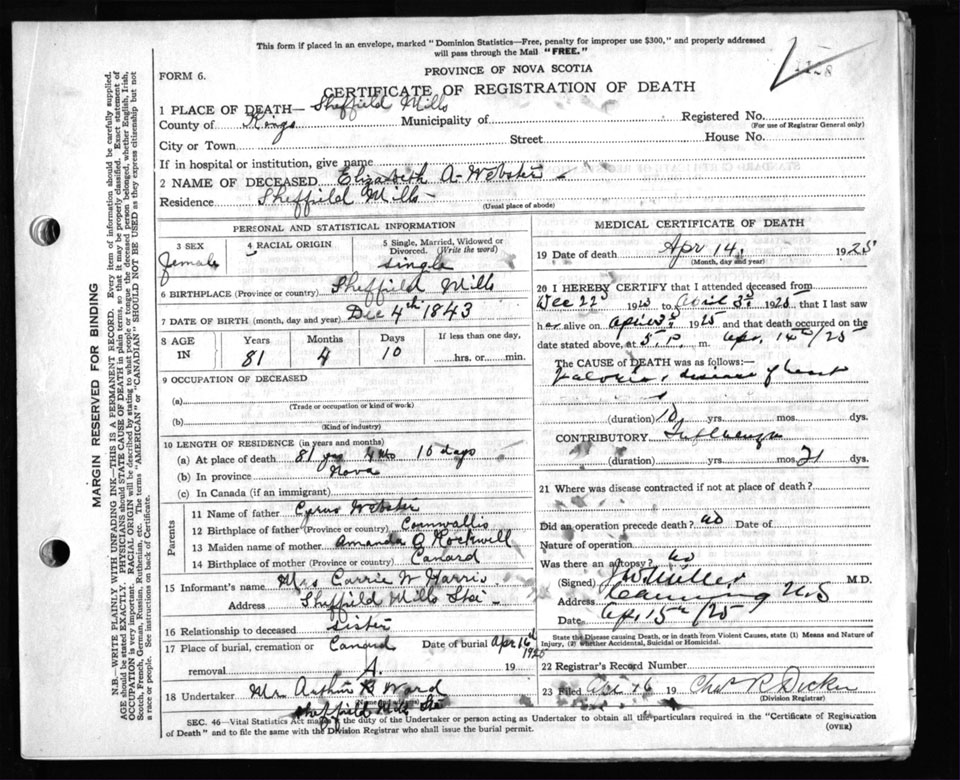 This form if placed in an envelope, marked "Dominion Statistics—Free, penalty for improper use $300," and properly addressed
will pass through the Mail "FREE."
FORM 6.
PROVINCE OF NOVA SCOTIA
CERTIFICATE OF REGISTRATION OF DEATH
1 PLACE OF DEATH— Sheffield Mills
County of Kings Municipality of Registered No.
(For use of Registrar General only)
City or Town Street House No.
If in hospital or institution, give name
2 NAME OF DECEASED Elizabeth A. Webster
Residence Sheffield Mills
(Usual place of abode)
PERSONAL AND STATISTICAL INFORMATION
3 SEX 4 RACIAL ORIGIN 5 Single, Married, Widowed or
Divorced. (Write the word)
female single
6 BIRTHPLACE (Province or country) Sheffield Mills
7 DATE OF BIRTH (month, day and year) Dec 4th 1843
8 AGE IN Years Months Days If less than one day,
81 4 10 hrs. or min.
9 OCCUPATION OF DECEASED
(a)
(Trade or occupation or kind of work)
(b)
(Kind of industry)
10 LENGTH OF RESIDENCE (in years and months)
(a) At place of death 81 yrs 4 mo 10 days
(b) In province Nova
(c) In Canada (if an immigrant)
Parents
11 Name of father Cyrus Webster
12 Birthplace of father (Province or country) Cornwallis
13 Maiden name of mother Amanda O Rockwell
14 Birthplace of mother (Province or country) Canard
15 Informant's name Mrs Carrie W Harris
Address Sheffield Mills Sta
16 Relationship to deceased sister
17 Place of burial, cremation or Canard Date of burial Apr 16th
1925
removal 19
18 Undertaker Mr Arthur B Ward
Sheffield Mills Sta
MEDICAL CERTIFICATE OF DEATH
19 Date of death Apr 14, 1925
(Month, day and year)
20 I HEREBY CERTIFY that I attended deceased from
Dec 22d 1923 to April 3d 1925 that I last saw
her alive on April 3d 1925 and that death occurred on the
date stated above, at 5 P. m. Apr. 14th/25
The CAUSE of DEATH was as follows:—
Valvular disease of heart
(duration) 10 yrs. mos. dys.
CONTRIBUTORY Influenza
(duration) yrs. mos. 21 dys.
21 Where was disease contracted if not at place of death?
Did an operation precede death? no Date of
Nature of operation
Was there an autopsy? no
(Signed) Miller M.D.
Address Canning N.S
Date Apr 15th/25
State the Disease causing Death, or in death from Violent Causes, state (1) Means and Nature of
Injury, (2) whether Accidental, Suicidal or Homicidal.
22 Registrar's Record Number
23 Filed 16 19 Chas R Dickie
(Division Registrar)
SEC. 46—Vital Statistics Act makes it the duty of the Undertaker or person acting as Undertaker to obtain all the particulars required in the "Certificate of Registration
of Death" and to file the same with the Division Registrar who shall issue the burial permit.
(OVER)
MARGIN RESERVED FOR BINDING
N.B.—WRITE PLAINLY WITH UNFADING INK—THIS IS A PERMANENT RECORD. Every item of information should be carefully supplied.
AGE should be stated EXACTLY. PHYSICIANS should STATE CAUSE OF DEATH in plain terms, so that it may be properly classified. Exact statement of
OCCUPATION is very important. RACIAL ORIGIN will be described by stating to what people or tongue the deceased person belonged, whether English, Irish,
Scotch, French, German, Russian, Ruthenian, etc. The terms "AMERICAN" or "CANADIAN" SHOULD NOT BE USED as they express citizenship but not
a race or people. See instructions on back of Certificate.